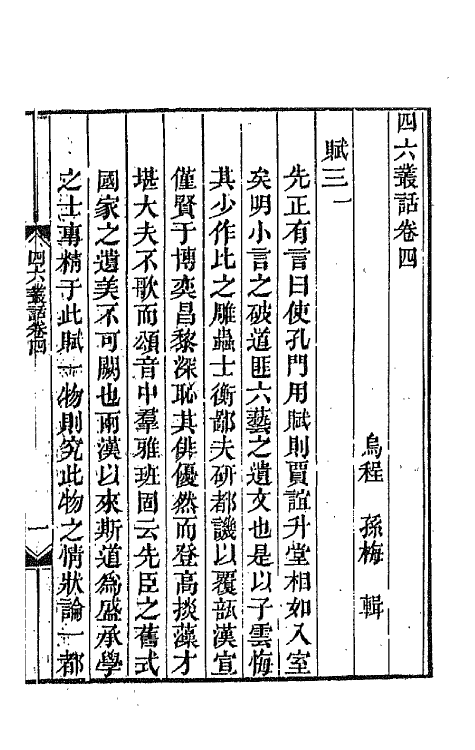 四六叢話卷四
烏程 孫梅 輯
賦三一
先正有言曰使孔門用賦則賈誼升堂相如入室
矣明小言之破道匪六藝之遺文也是以子雲悔
其少作比之雕蟲士衡鄙夫研都譏以覆瓿漢宣
僅賢于博奕昌黎深恥其俳優然而登高掞藻才
堪大夫不歌而頌音中羣雅班固云先臣之舊式
國家之遺美不可闕也兩漢以來斯道為盛承學
之士專精于此賦一物則究此物之情狀論一都
四六叢話卷四
一